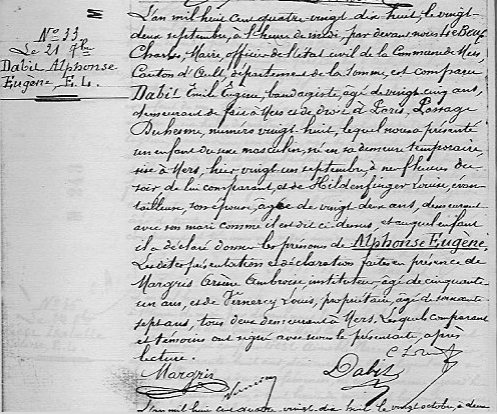 Nº 33
Le 21 7bre
Dabit Alphonse
Eugène, E. L.
L'an mil huit cent quatre vingt dix huit, le vingt-
deux septembre, à l'heure de midi, par devant nous Le Beuf
Charles, Maire, officier de l'état civil de la Commune de Mers,
Canton d'Ault, département de la Somme, est comparu
Dabit Emile Eugène, bandagiste, âgé de vingt cinq ans,
demeurant de fait à Mers et de droit à Paris, Passage
Duhesme, numéro vingt huit, lequel nous a présenté
un enfant du sexe masculin, né en sa demeure temporaire,
sise à Mers, hier vingt un septembre, à neuf heures du
soir de lui comparant, et de Hildenfinger Louise, éven-
tailleuse, son épouse, âgée de vingt deux ans, demeurant
avec son mari comme il est dit ci-dessus, et auquel enfant
il a déclaré donner les prénoms de Alphonse Eugène.
Lesdites présentation et déclaration faites en présence de
Margris Arsène Ambroise, instituteur, âgé de cinquante
un ans, et de Louis, propriétaire, âgé de soixante
sept ans, tous deux demeurant à Mers. Lesquels comparant
et témoins ont signé avec nous le présent acte, après
lecture.
Margris
Dabit
L'an mil huit cent quatre vingt dix huit, le vingt octobre, à deux